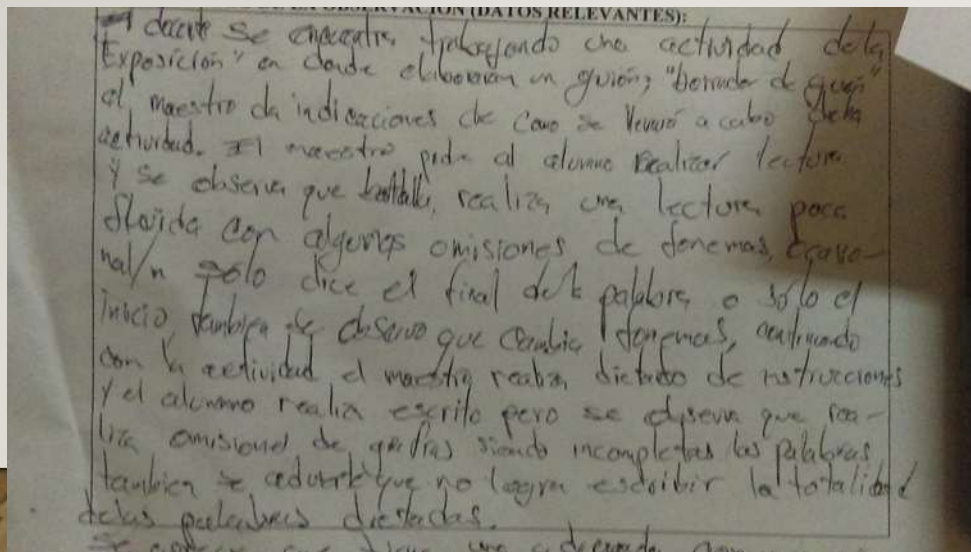 DE LA OBSERVACIÓN (DATOS RELEVANTES):
El docente se encuentra trabajando una actividad de la
Exposición" en donde elaboraran un guión; "borrador de guión"
el maestro da indicaciones de como se llevará a cabo dicha
actividad. El maestro pide al alumno realizar lectura
y se observa que batalla, realiza una lectura poco
fluida con algunas omisiones de fonemas, ocasio-
nal/n solo dice el final de la palabra o sólo el
inicio, tambien se observo que cambia fonemas, continuando
con la actividad, el maestro realiza dictado de instrucciones
y el alumno realiza escrito pero se observa que rea-
liza omisiones de grafías siendo incompletas las palabras
tambien se advierte que no logra escribir la totalidad
de las palabras dictadas.
se que tiene una adecuada